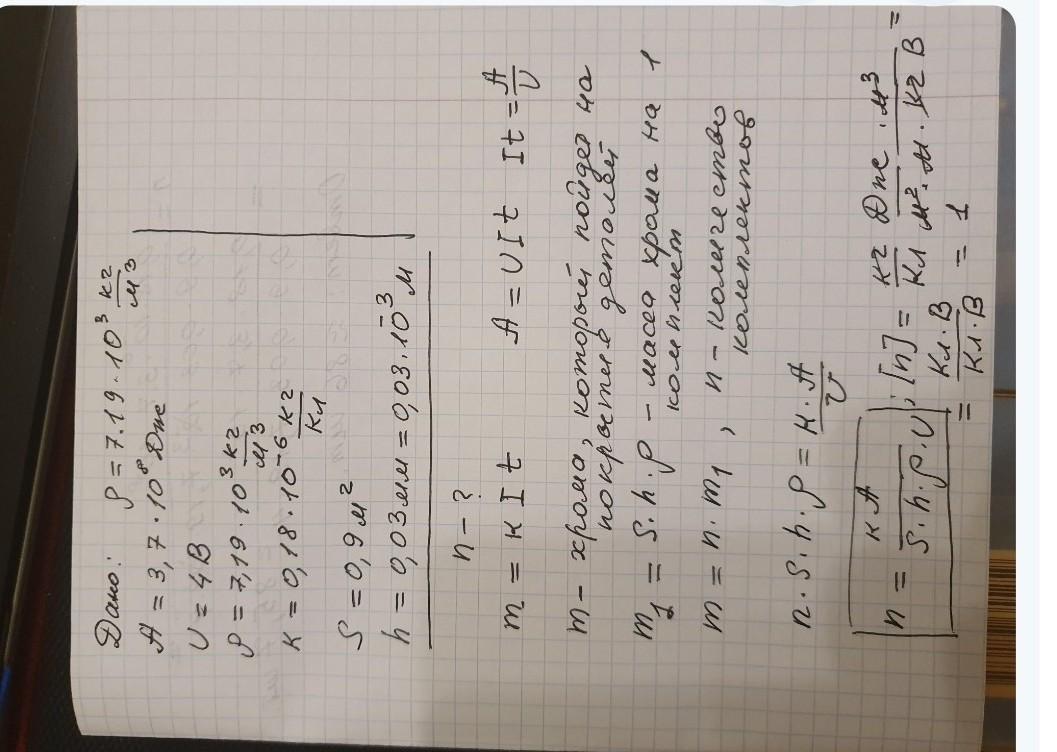 Дано: ρ = 7.19 · 10³ кг/м³
A = 3,7 · 10⁸ Дж
U = 4 В
ρ = 7,19 · 10³ кг/м³
к = 0,18 · 10⁻⁶ кг/Кл
S = 0,9 м²
h = 0,03 мм = 0,03 · 10⁻³ м
n - ?
m = к I t A = U I t It = A/U
m - хрома, который пойдет на
покрытие деталей
m₁ = S · h · ρ - масса хрома на 1
комплект
m = n · m₁ , n - количество
комплектов
n · S · h · ρ = к · A/U
n = кA/(S · h · ρ · U) ; [n] = кг/Кл Дж · м³/(м² · м · кг В) =
= Кл · В/Кл · В = 1